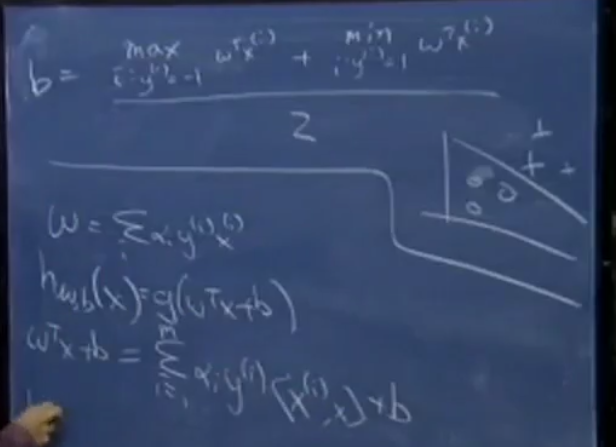 b = max i:y^(i)=-1 w^T x^(i) + min i:y^(i)=1 w^T x^(i)
2
w = Σ_i α_i y^(i) x^(i)
h_{w,b}(x) = g(w^T x + b)
w^T x + b = Σ_{i=1}^m α_i y^(i) ⟨x^(i), x⟩ + b